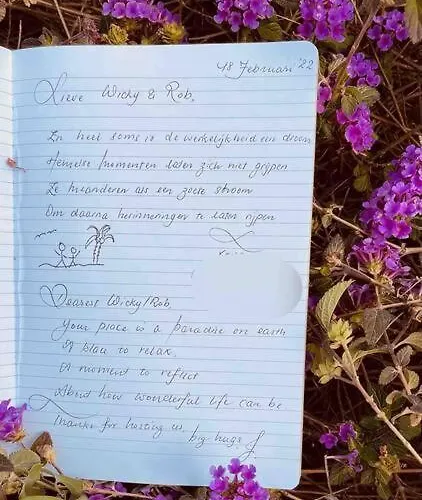 18 Februari '22
Lieve Wicky & Rob,
En heel soms is de werkelijkheid een droom
Hemelse momenten laten zich niet grijpen
Ze meanderen als een zoete stroom
Om daarna herinneringen te laten rijpen
Dearest Wicky/Rob,
Your place is a paradise on earth
A place to relax,
A moment to reflect
About how wonderful life can be
Thanks for hosting us,
big hugs J.